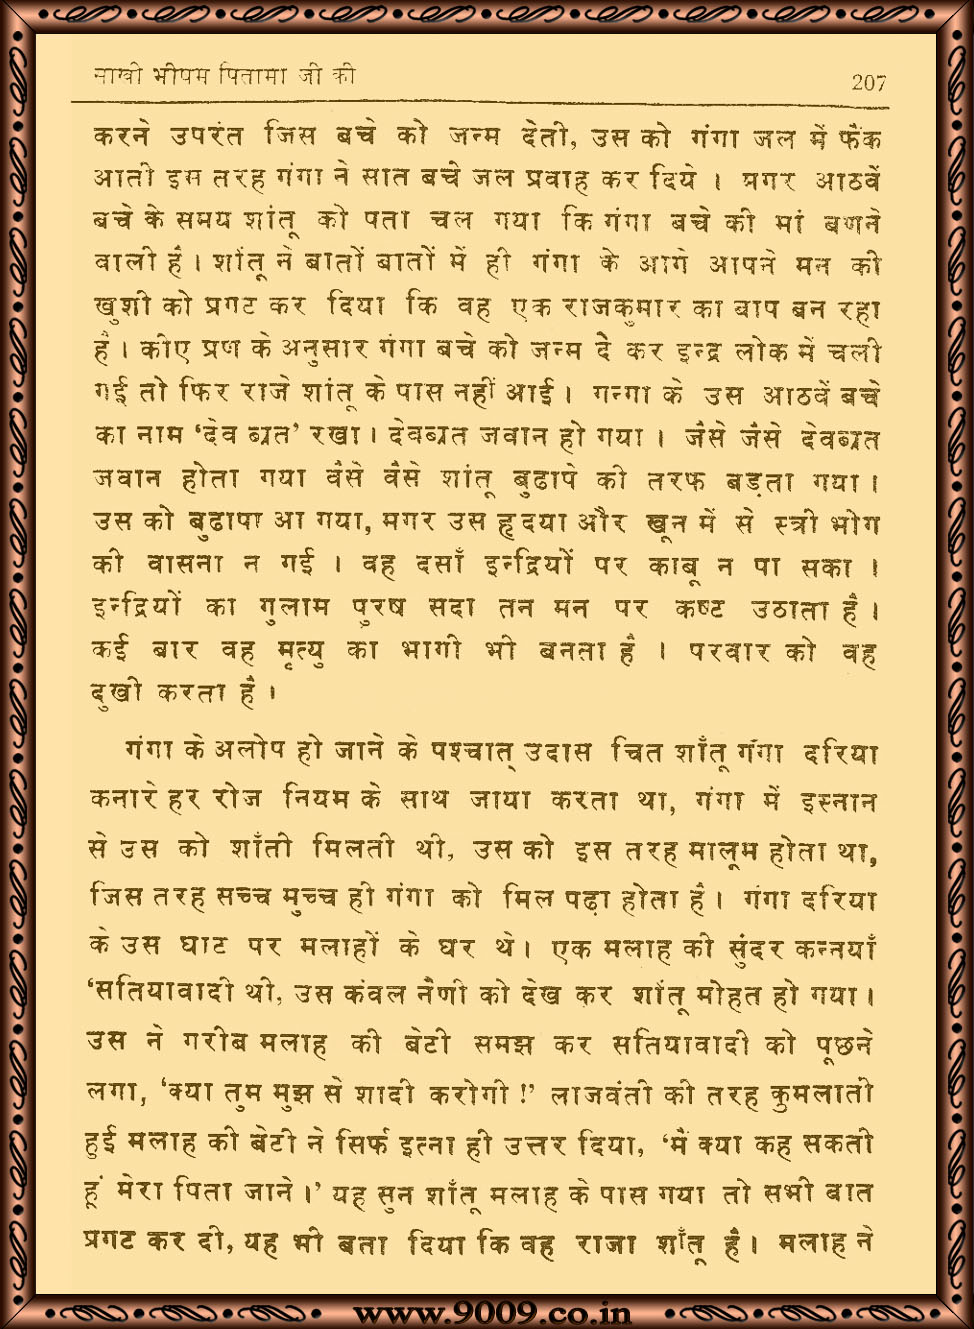 साखी भीषम पितामा जी की
207
करने उपरंत जिस बचे को जन्म देती, उस को गंगा जल में फैंक
आती इस तरह गंगा ने सात बचे जल प्रवाह कर दिये । मगर आठवें
बचे के समय शांतू को पता चल गया कि गंगा बचे की मां बणने
वाली है । शांतू ने बातों बातों में ही गंगा के आगे आपने मन की
खुशी को प्रगट कर दिया कि वह एक राजकुमार का बाप बन रहा
है । कीए प्रण के अनुसार गंगा बचे को जन्म दे कर इन्द्र लोक में चली
गई तो फिर राजे शांतू के पास नहीं आई । गन्गा के उस आठवें बच्चे
का नाम ‘देव ब्रत’ रखा । देवब्रत जवान हो गया । जैसे जैसे देवब्रत
जवान होता गया वैसे वैसे शांतू बुढापे की तरफ बड़ता गया ।
उस को बुढापा आ गया, मगर उस हृदया और खून में से स्त्री भोग
की वासना न गई । वह दसाँ इन्द्रियों पर काबू न पा सका ।
इन्द्रियों का गुलाम पुरष सदा तन मन पर कष्ट उठाता है ।
कई बार वह मृत्यु का भागी भी बनता है । परवार को वह
दुखी करता है ।
गंगा के अलोप हो जाने के पश्चात् उदास चित शाँतू गंगा दरिया
कनारे हर रोज नियम के साथ जाया करता था, गंगा में इस्नान
से उस को शाँती मिलती थी, उस को इस तरह मालूम होता था,
जिस तरह सच्च मुच्च ही गंगा को मिल पढ़ा होता है । गंगा दरिया
के उस घाट पर मलाहों के घर थे । एक मलाह की सुंदर कन्नयाँ
‘सतियावादी थी, उस कंवल नैणी को देख कर शाँतू मोहत हो गया ।
उस ने गरीब मलाह की बेटी समझ कर सतियावादी को पूछने
लगा, ‘क्या तुम मुझ से शादी करोगी !’ लाजवंती की तरह कुमलाती
हुई मलाह की बेटी ने सिर्फ इत्ना ही उत्तर दिया, ‘मैं क्या कह सकती
हूं मेरा पिता जाने ।’ यह सुन शाँतू मलाह के पास गया तो सभी बात
प्रगट कर दी, यह भी बता दिया कि वह राजा शाँतू है । मलाह ने
www.9009.co.in